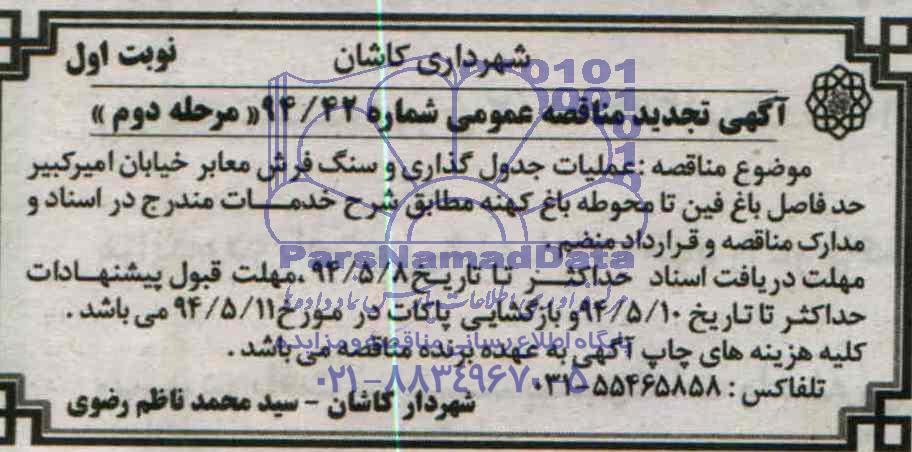 شهرداری کاشان
نوبت اول
آگهی تجدید مناقصه عمومی شماره ۹۴/۴۲« مرحله دوم »
موضوع مناقصه :عملیات جدول گذاری و سنگ فرش معابر خیابان امیرکبیر
حد فاصل باغ فین تا محوطه باغ کهنه مطابق شرح خدمـــات مندرج در اسناد و
مدارک مناقصه و قرارداد منضم .
مهلت دریافت اسناد حداکثـــر تا تاریخ ۹۴/۵/۸ ،مهلت قبول پیشنهـادات
حداکثر تا تاریخ ۹۴/۵/۱۰و بازگشایی پاکات در مورخ ۹۴/۵/۱۱ می باشد .
کلیه هزینه های چاپ آگهی به عهده برنده مناقصه می باشد .
تلفاکس : ۵۵۴۶۵۸۵۸-۰۳۱
شهردار کاشان - سید محمد ناظم رضوی
0101
ParsNamadData
پایگاه اطلاع رسانی مناقصه و مزایده
۰۲۱-۸۸۳۴۹۶۷۰-۵